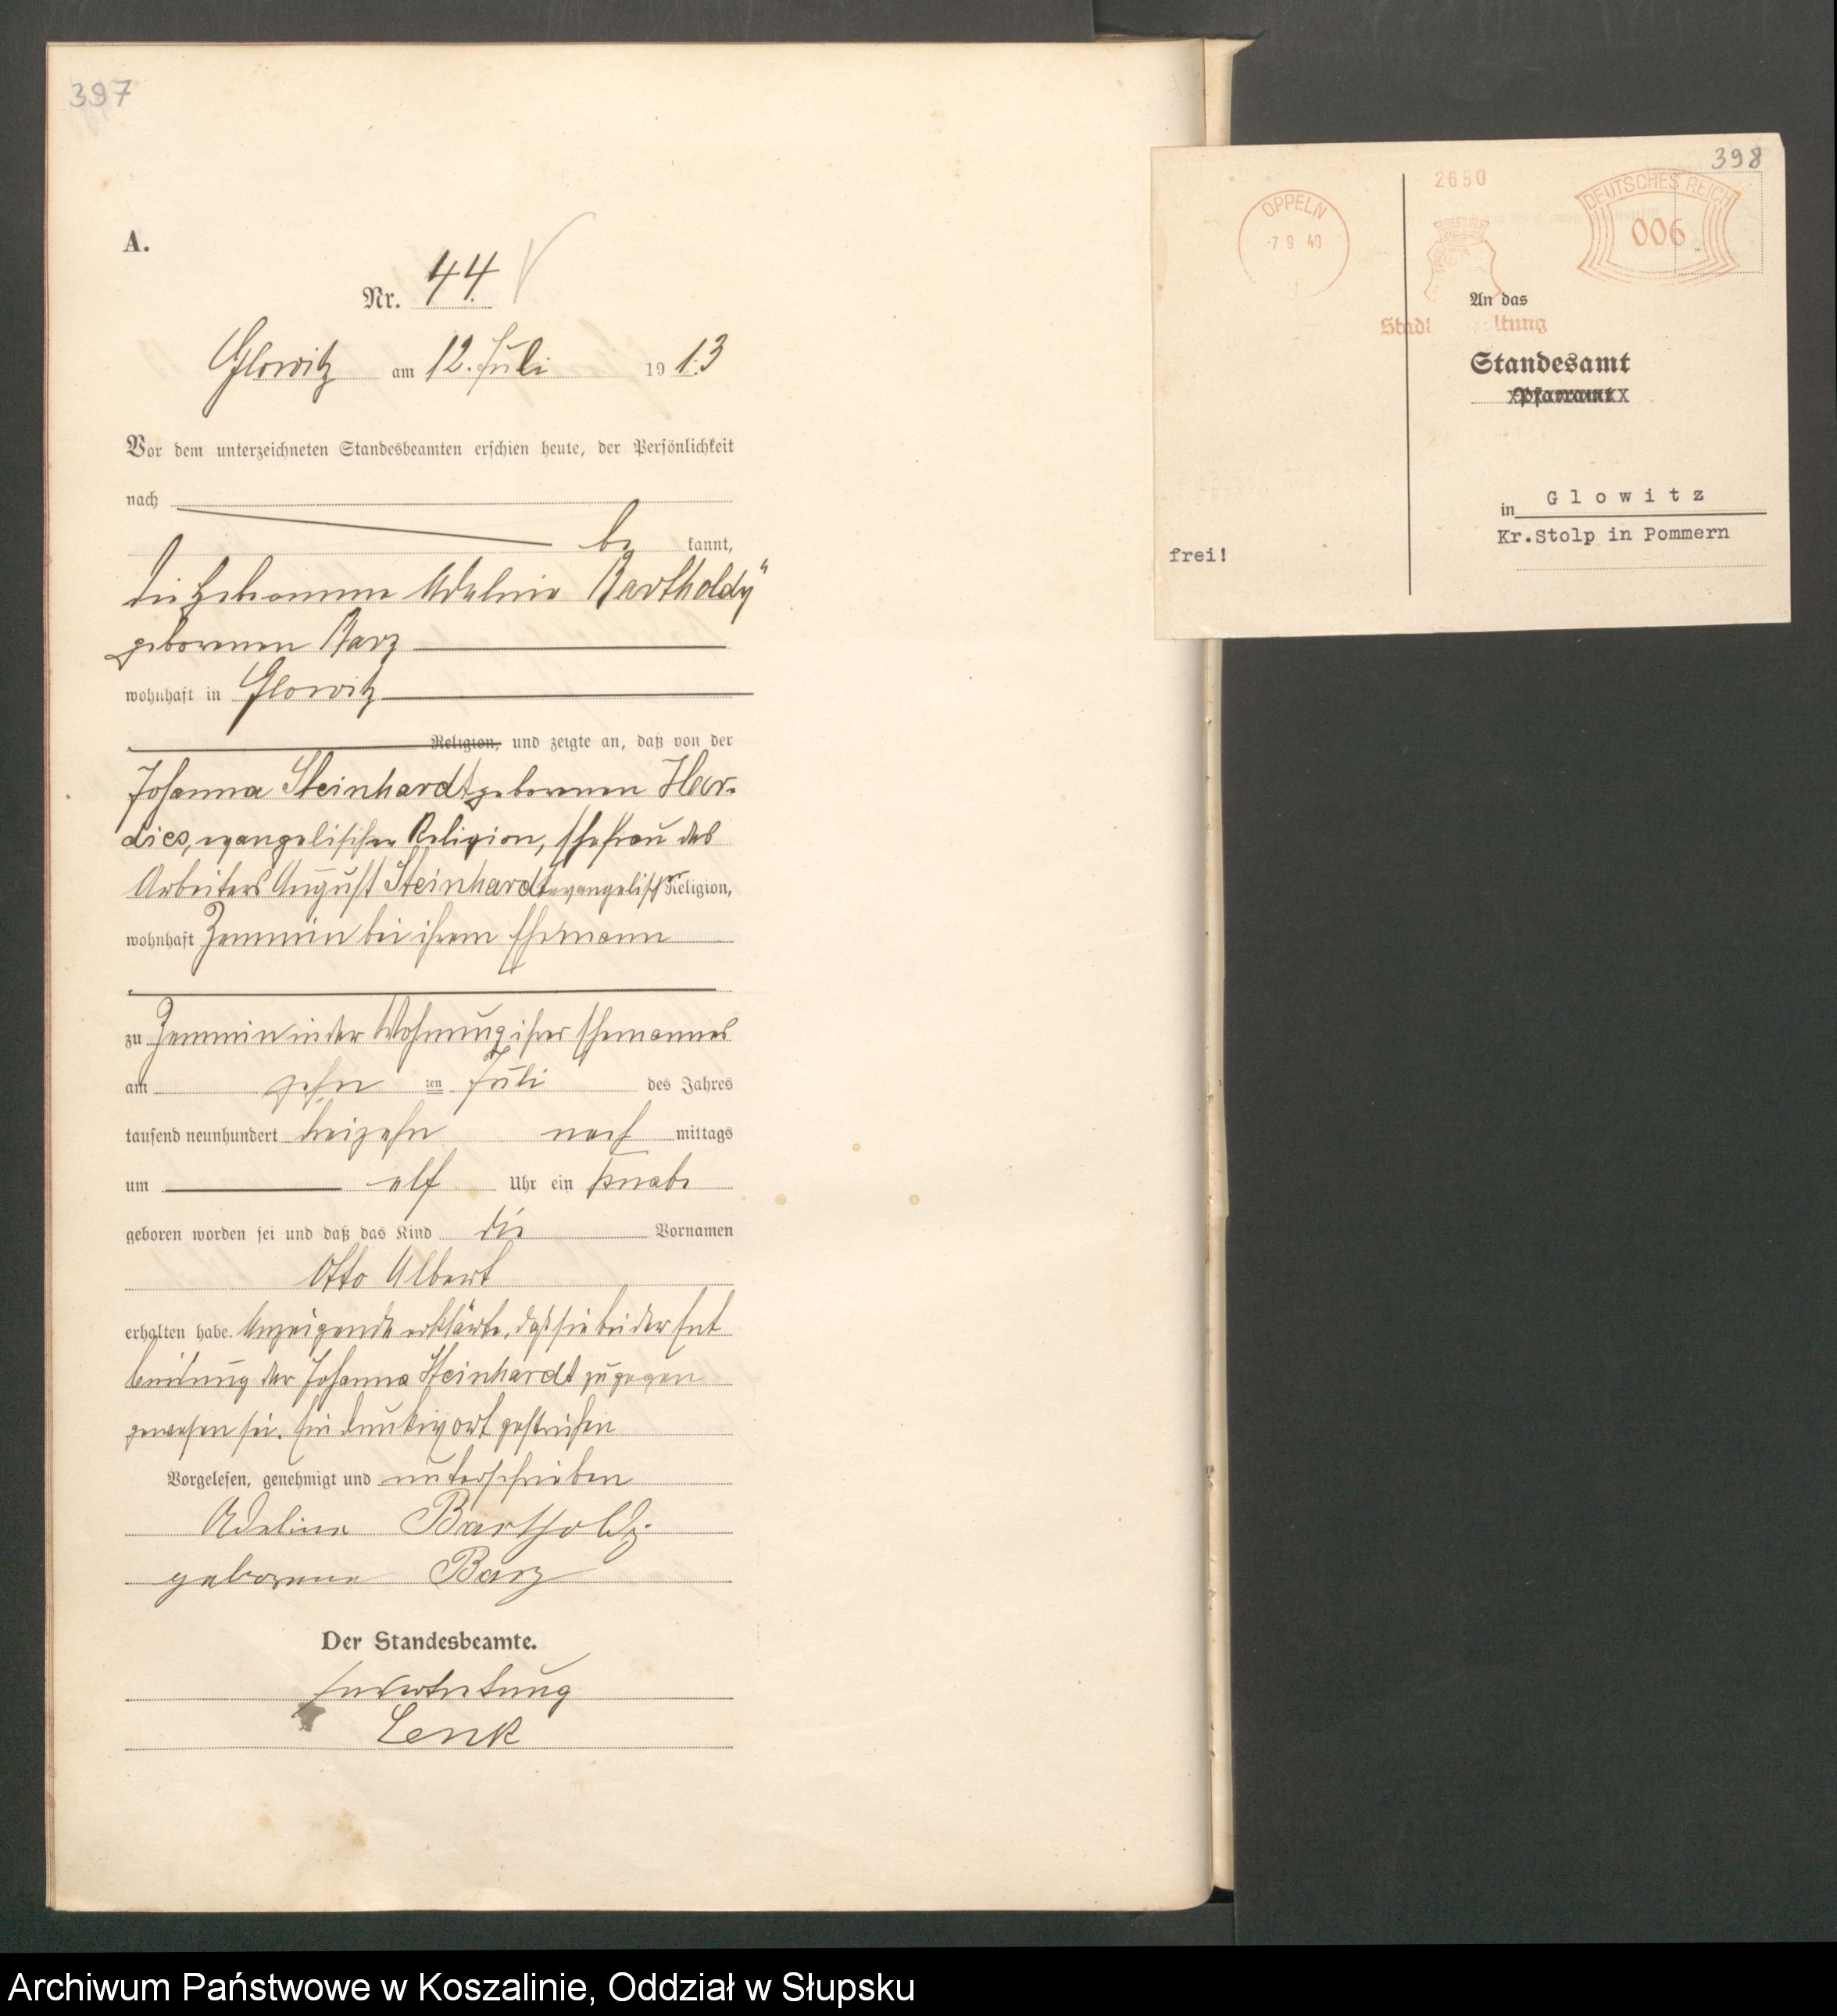 397
A.
Nr. 44.
Glowitz am 12. Juli 1913
Vor dem unterzeichneten Standesbeamten erschien heute, der Persönlichkeit
nach
be kannt,
die Hebamme Adeline Bartholdy
geborenen Barz
wohnhaft in Glowitz
Religion, und zeigte an, daß von der
Johanna Steinhardt geborenen Har-
dies, evangelischer Religion, Ehefrau des
Arbeiters August Steinhardt evangelischer Religion,
wohnhaft Zemmin bei ihrem Ehemann
zu Zemmin in der Wohnung ihres Ehemannes
am zehn ten Juli des Jahres
tausend neunhundert dreizehn nach mittags
um elf Uhr ein Knabe
geboren worden sei und daß das Kind die Vornamen
Otto Albert
erhalten habe. Anzeigende erklärte, daß sie bei der Ent
bindung der Johanna Steinhardt zugegen
gewesen sei. Ein Druckwort gestrichen
Vorgelesen, genehmigt und unterschrieben
Adeline Bartholdy
geborene Barz
Der Standesbeamte.
In Vertretung
Lenk
398
2650
OPPELN
-7 9 40
DEUTSCHES REICH
006
An das
Standesamt
Pfarramt
in Glowitz
Kr.Stolp in Pommern
frei!
Archiwum Państwowe w Koszalinie, Oddział w Słupsku